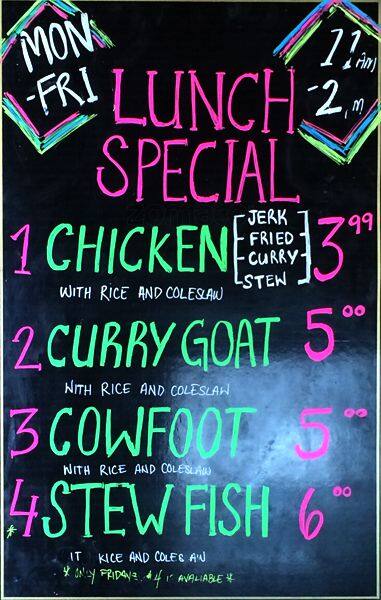 MON
-FRI
11 AM
-2 .M
LUNCH
SPECIAL
1 CHICKEN JERK 3.99
FRIED
CURRY
STEW
WITH RICE AND COLESLAW
2 CURRY GOAT 5.00
WITH RICE AND COLESLAW
3 COWFOOT 5.00
WITH RICE AND COLESLAW
*4 STEW FISH 6.00
IT KICE AND COLES A'N
* ONLY FRIDAYS #4 I AVALIABLE *